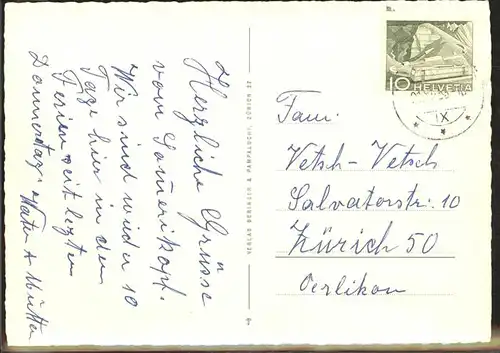 Herzliche Grüsse
vom
Wir sind wieder 10
Tage hier in den
Ferien seit letzten
Donnerstag. Vater + Mutter
HELVETIA
10
IX
Fam.
Vetsch-Vetsch
Salvatorstr. 10
Zürich 50
Oerlikon